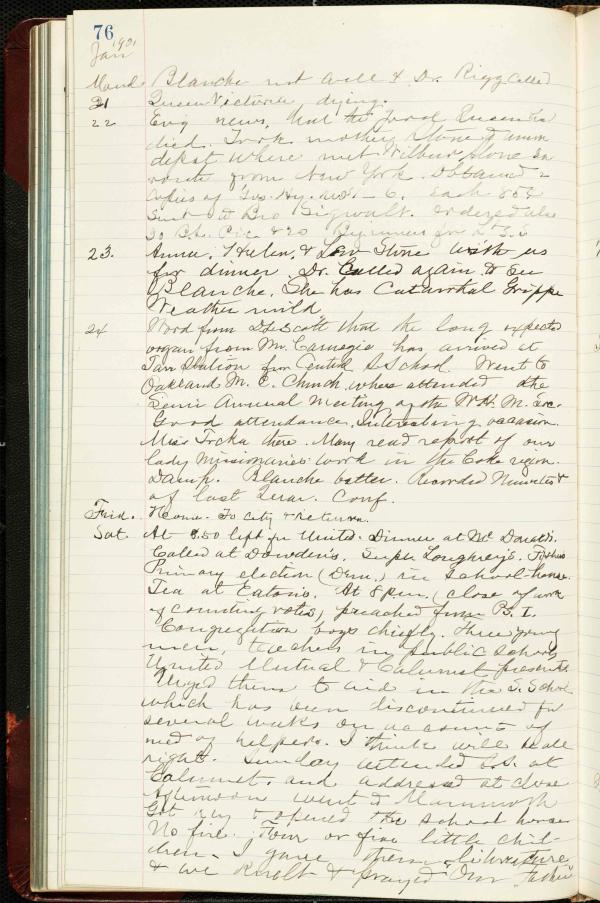 76
Jan 1901
Mond. Blanche not well & Dr. Rigg called
21 Queen Victoria dying.
22 Evg news, that the good Queen has
died. Took mother Stone down
depot where met Wilbur Stone en
route from New York. Obtained
Copies of Gos. Hy. 6. each 85¢
Sent to Bro Sigwalt. Ordered also
20 Beginners
23. Anna, Helen, & Lou Stone with us
for dinner. Dr. Called again to see
Blanche. She has Catarrhal Grippe
Weather mild.
24 Word from Scott that the long expected
organ from Mr. Carnegie has arrived at
Tarr Station for Central S. School. Went to
Oakland M. E. Church, where attended the
Semi Annual Meeting of the W. H. M. Soc.
Good attendance, Interesting occasion.
Miss there. Mary read report of our
lady missionaries work in the Coke region.
Damp. Blanche better. Recorded Minutes
of last Conf.
Frid. Home. To City & return.
Sat. At 8.50 left for United. Dinner at McDonald's.
Called at Dowden's. Supt. Loughrey's.
Primary election (Dem.) in school-house.
Tea at Eaton's. At 8 p.m. (close of work
of counting votes) preached from
Congregation boys chiefly. Three young
men, teachers in public schools
United Mutual & Calumet present.
Urged them to aid in the S. School
which has been discontinued for
several weeks on account of
need of helpers. I think will be all
right. Sunday attended S.S. at
Calumet, and addressed at close
Afternoon went to Mammoth
Got key & opened the school house
No fire. Four or five little chil-
dren. I gave them literature
& we knelt & prayed "Our Father"